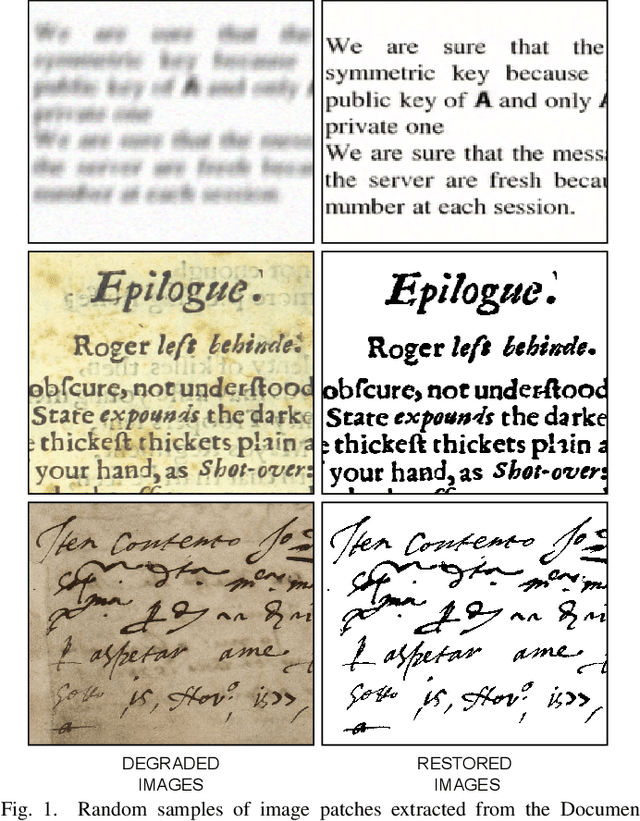 We are sure that the
symmetric key because
public key of A and only
private one
We are sure that the mess
the server are fresh becau
number at each session.
We are sure that the
symmetric key because
public key of A and only A
private one
We are sure that the messa
the server are fresh becau
mumber at each session.
Epilogue.
Roger left behinde.
obſcure, not underſtood
State expounds the darke
e thickeſt thickets plain a
your hand, as Shot-over:
Epilogue.
Roger left behinde.
obſcure, not underſtood
State expounds the darke
e thickeſt thickets plain a
your hand, as Shot-over:
Iten Contento
aspetar ame
is, Nov.º is>>,
Iten Contento
aspetar ame
is, Nov.º is>>,
DEGRADED
IMAGES
RESTORED
IMAGES
Fig. 1. Random samples of image patches extracted from the Documen